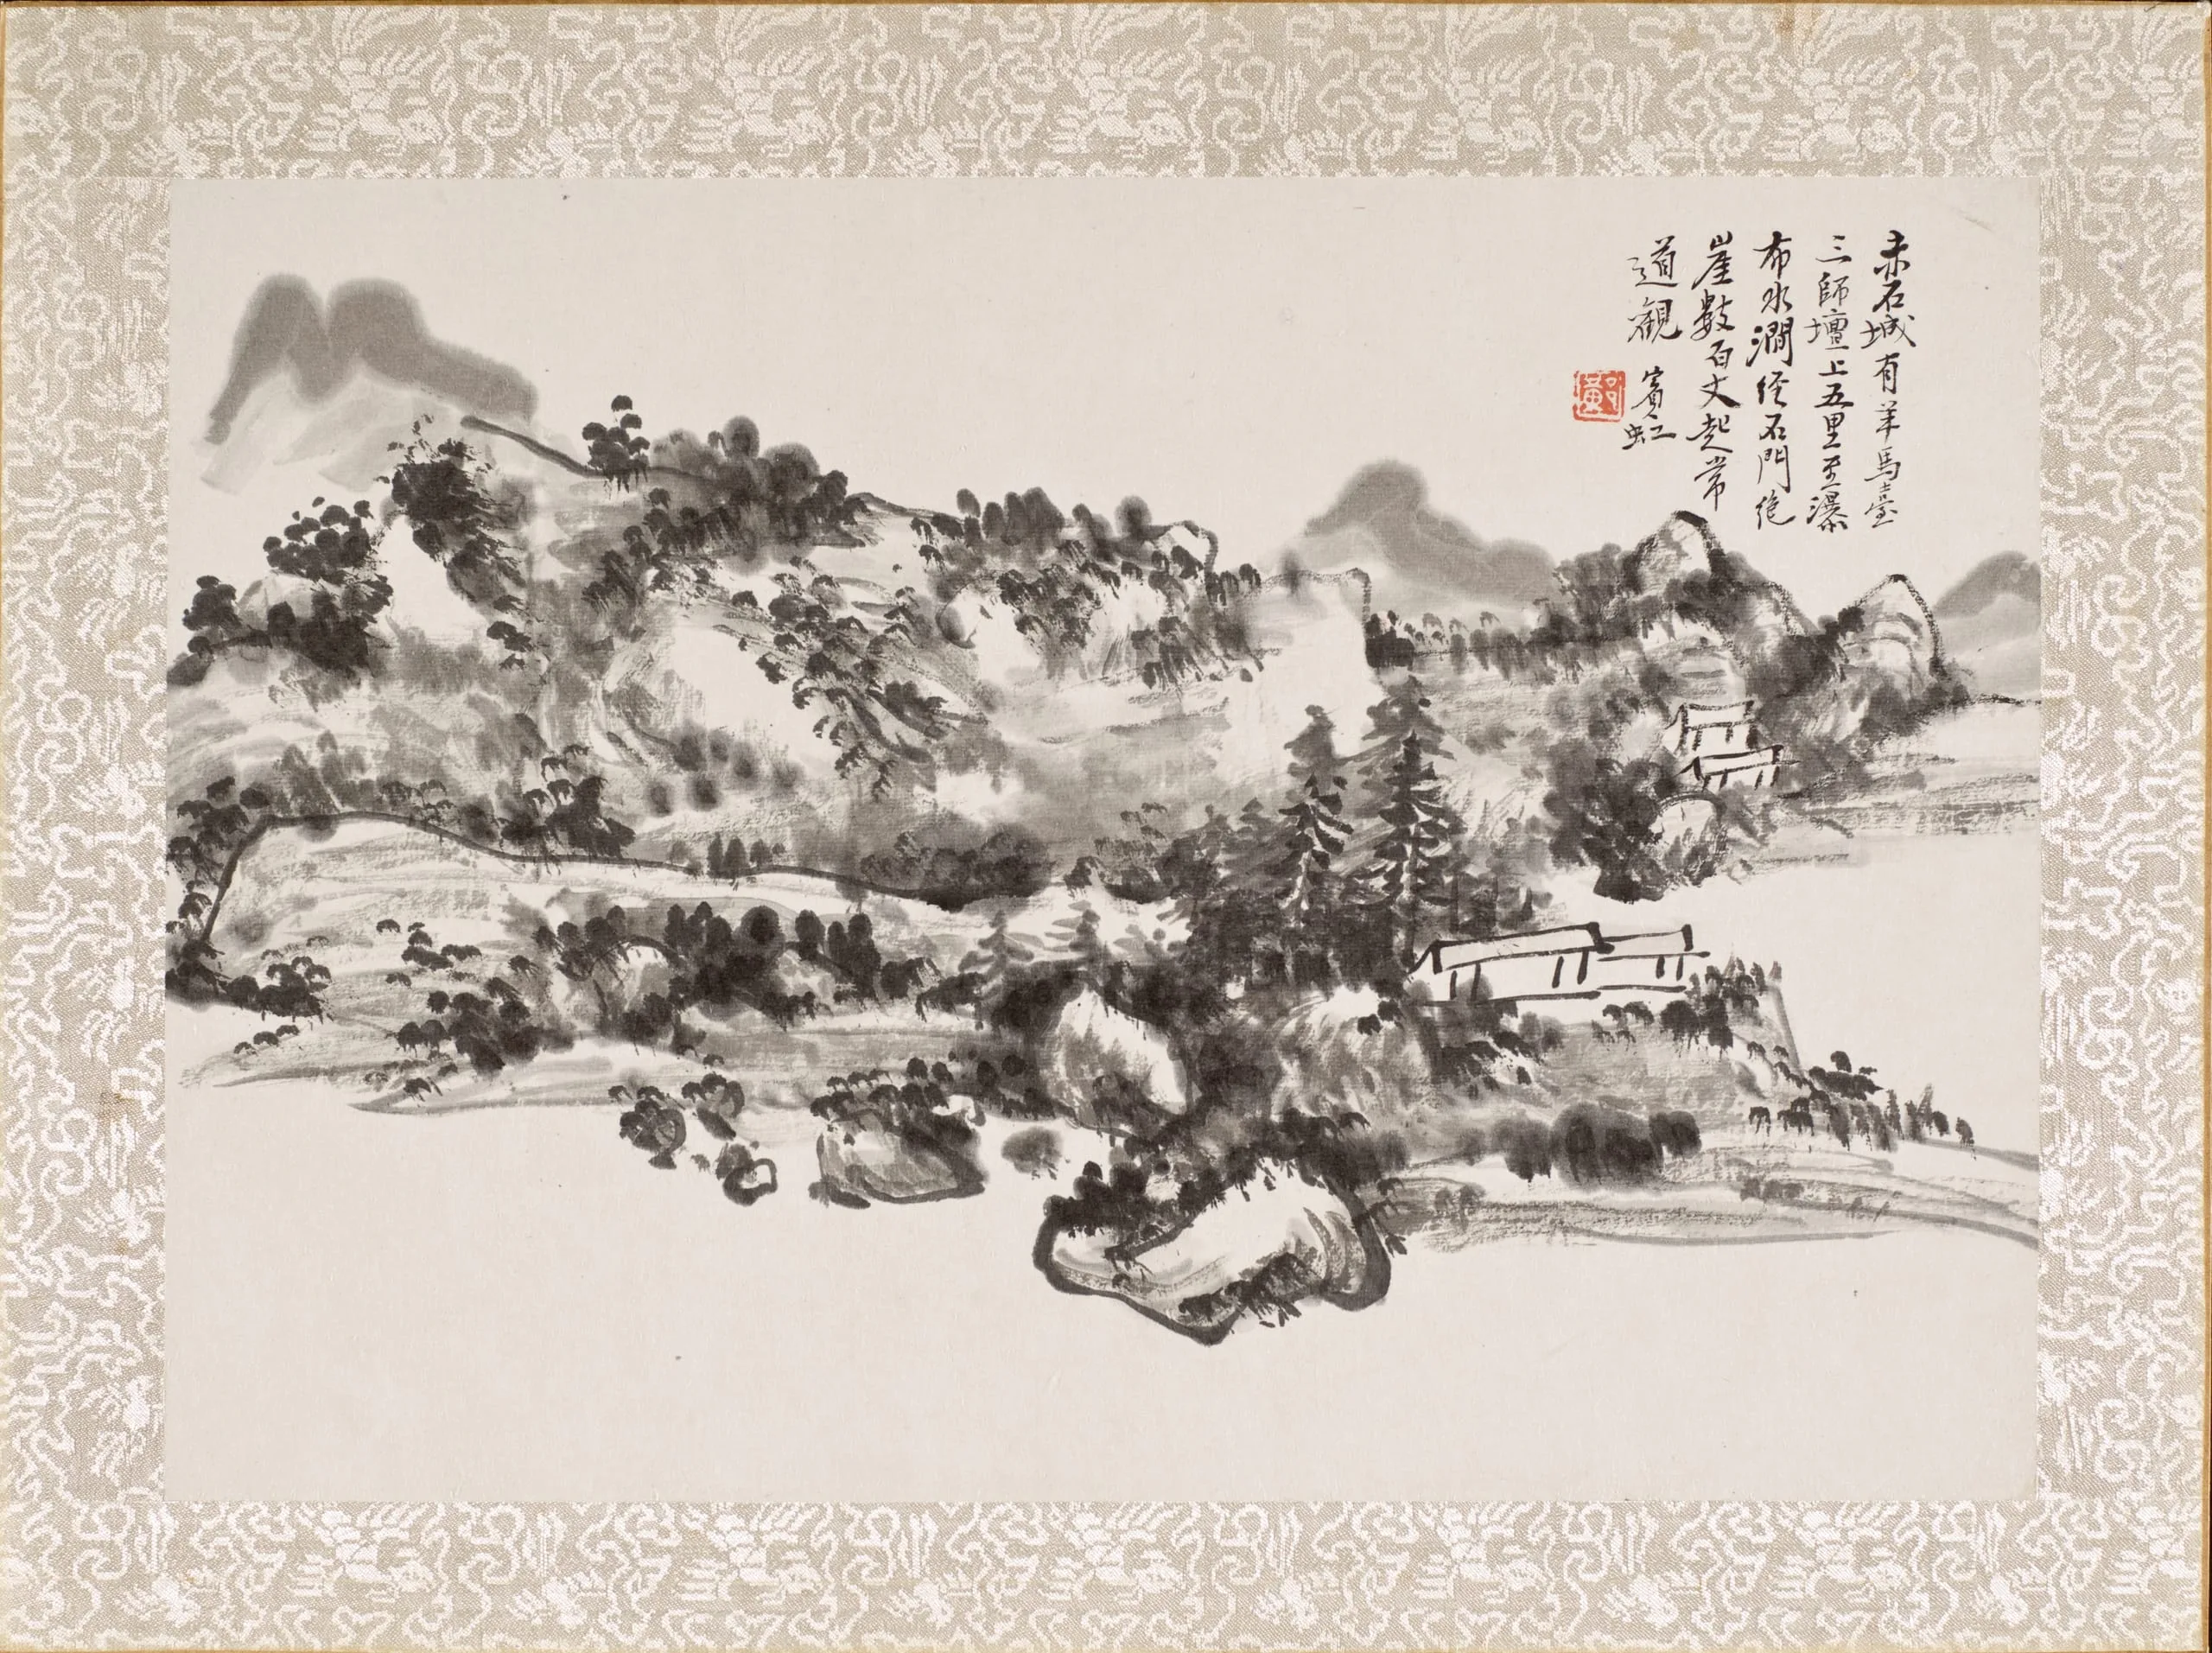 赤石城有羊馬臺
三師壇上五里至瀑
布水澗经石門绝
崖數百丈起常
道觀
賓虹
黃